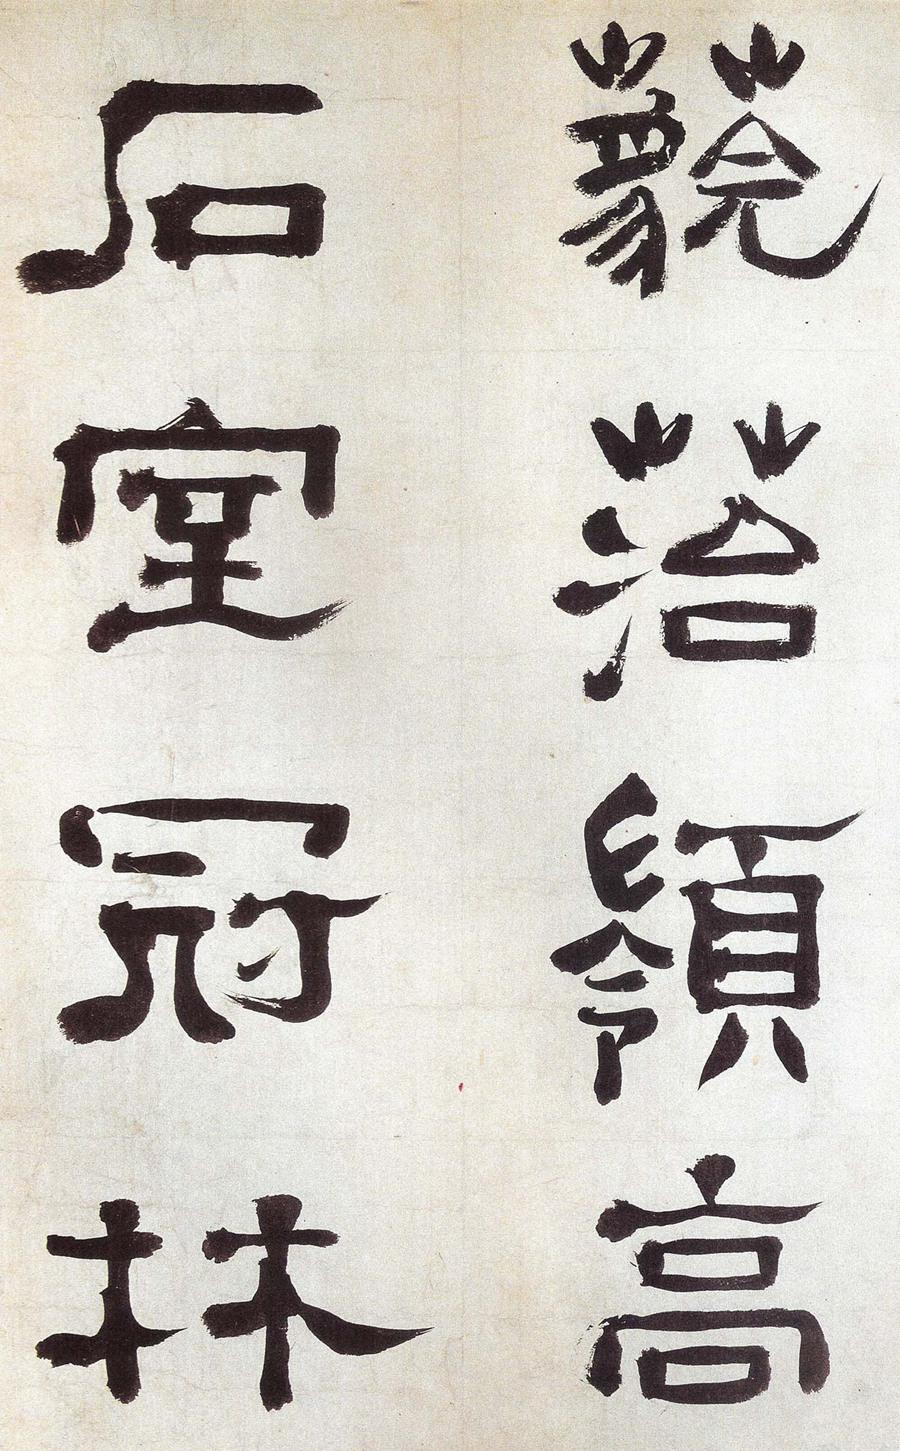 藐菭嶺高
石室冠林